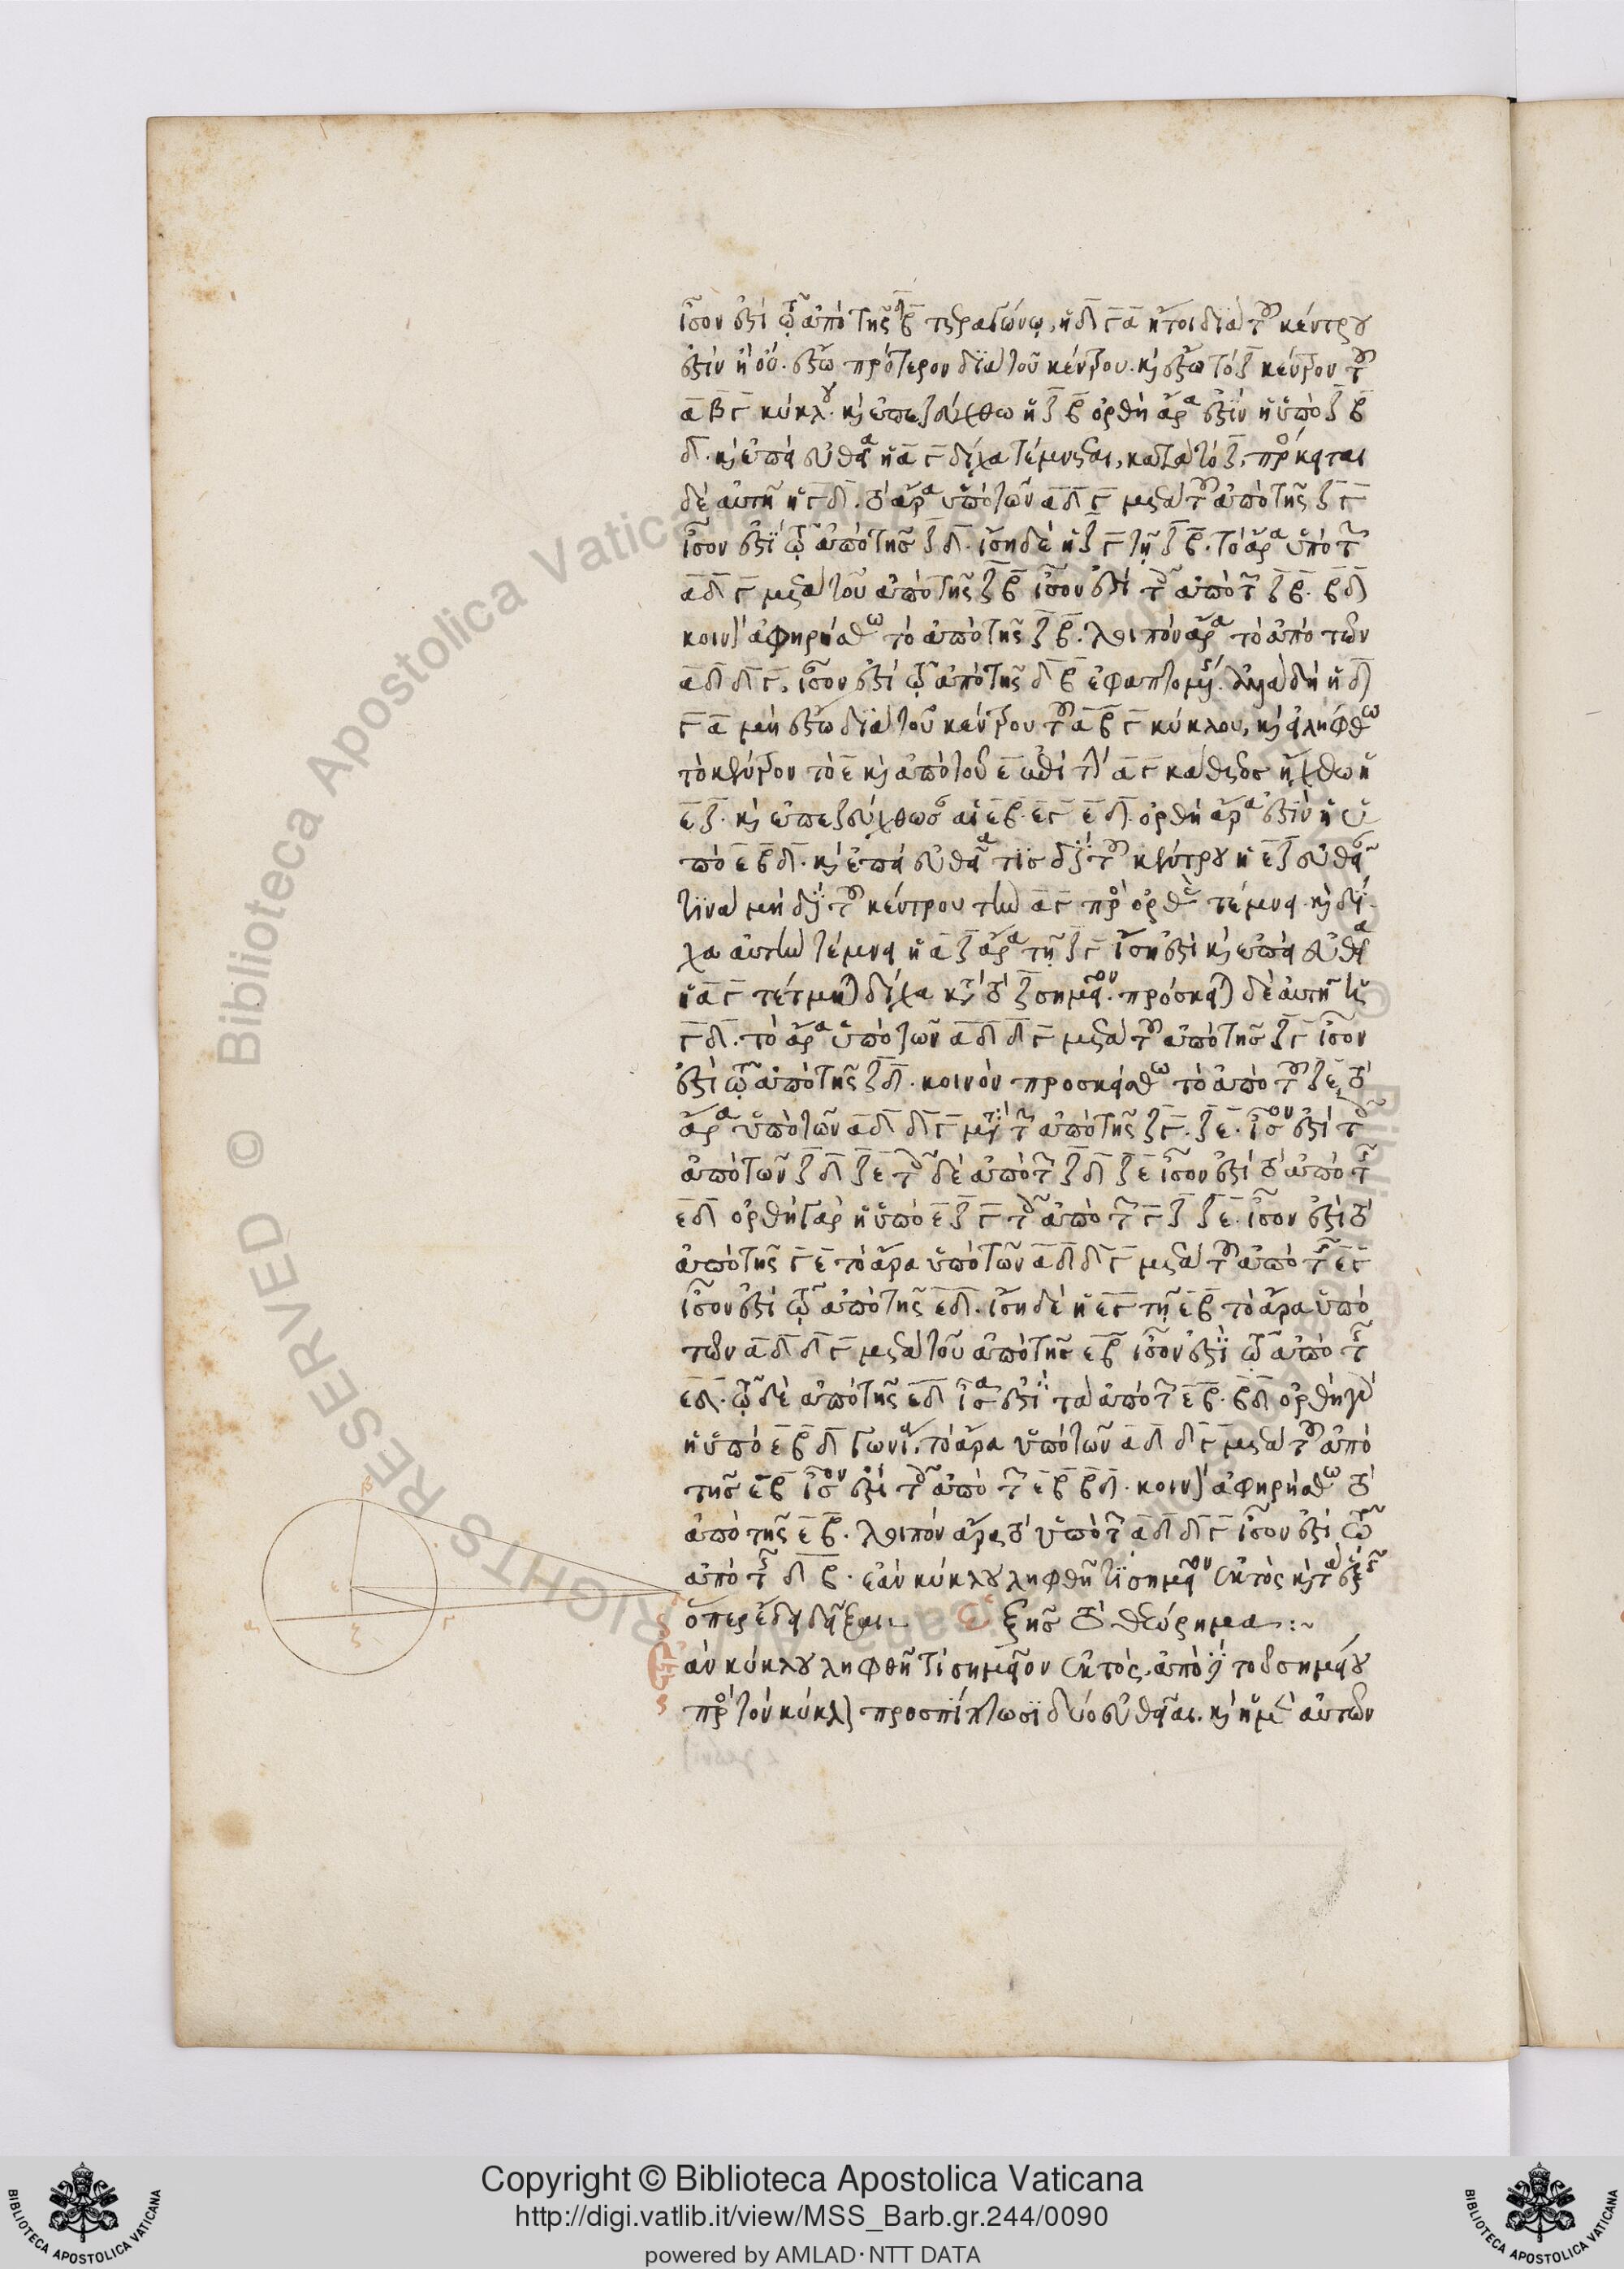 ἴσον ἐστὶ τῷ ἀπὸ τῆς δβ τετραγώνῳ, ἡ δὲ γα ἤτοι διὰ τοῦ κέντρου
ἐστὶν ἢ οὔ. ἔστω πρότερον διὰ τοῦ κέντρου. καὶ ἔστω τὸ ζ κέντρον τοῦ
αβγ κύκλου. καὶ ἐπεζεύχθω ἡ ζβ ὀρθὴ ἄρα ἐστὶν ἡ ὑπὸ ζβ
δ. καὶ ἐπεὶ εὐθεῖα ἡ αγ δίχα τέμνεται, κατὰ τὸ ζ, πρόκειται
δὲ αὐτῇ ἡ γδ. τὸ ἄρα ὑπὸ τῶν αδγ μετὰ τοῦ ἀπὸ τῆς ζγ
ἴσον ἐστὶ τῷ ἀπὸ τῆς ζδ. ἴση δὲ ἡ ζγ τῇ ζβ. τὸ ἄρα ὑπὸ τῶν
αδγ μετὰ τοῦ ἀπὸ τῆς ζβ ἴσον ἐστὶ τοῖς ἀπὸ τῶν ζβ. βδ
κοινὸν ἀφῃρήσθω τὸ ἀπὸ τῆς ζβ. λοιπὸν ἄρα τὸ ἀπὸ τῶν
αδ δγ, ἴσον ἐστὶ τῷ ἀπὸ τῆς δβ ἐφαπτομένης. ἀλλὰ δὴ ἡ δ
γα μὴ ἔστω διὰ τοῦ κέντρου τοῦ αβγ κύκλου, καὶ εἰλήφθω
τὸ κέντρον τὸ ε καὶ ἀπὸ τοῦ ε ἐπὶ τὴν αγ κάθετος ἤχθω ἡ
εζ. καὶ ἐπεζεύχθωσαν αἱ εβ. εγ εδ. ὀρθὴ ἄρα ἐστὶν ἡ ὑ
πὸ εβδ. καὶ ἐπεὶ εὐθεῖα τις διὰ τοῦ κέντρου ἡ εζ εὐθεῖαν
τινὰ μὴ διὰ τοῦ κέντρου τὴν αγ πρὸς ὀρθὰς τέμνει. καὶ δί
χα αὐτὴν τέμνει ἡ αζ ἄρα τῇ ζγ ἴση ἐστὶ καὶ ἐπεὶ εὐθεῖα
ἡ αγ τέτμηται δίχα κατὰ τὸ ζ σημεῖον. πρόσκειται δὲ αὐτῇ ἡ
γδ. τὸ ἄρα ὑπὸ τῶν αδ δγ μετὰ τοῦ ἀπὸ τῆς ζγ ἴσον
ἐστὶ τῷ ἀπὸ τῆς ζδ. κοινὸν προσκείσθω τὸ ἀπὸ τοῦ ζε, τὸ
ἄρα ὑπὸ τῶν αδ δγ μετὰ τῶν ἀπὸ τῆς ζγ. ζε. ἴσον ἐστὶ τοῖς
ἀπὸ τῶν ζδ ζε τοῖς δὲ ἀπὸ τῶν ζδ ζε ἴσον ἐστὶ τὸ ἀπὸ τῆς
εδ ὀρθὴ γὰρ ἡ ὑπὸ εζγ τοῖς ἀπὸ τῶν γζ ζε. ἴσον ἐστὶ τὸ
ἀπὸ τῆς γε τὸ ἄρα ὑπὸ τῶν αδ δγ μετὰ τοῦ ἀπὸ τῆς εγ
ἴσον ἐστὶ τῷ ἀπὸ τῆς εδ. ἴση δὲ ἡ εγ τῇ εβ τὸ ἄρα ὑπὸ
τῶν αδ δγ μετὰ τοῦ ἀπὸ τῆς εβ ἴσον ἐστὶ τῷ ἀπὸ τῆς
εδ. τῷ δὲ ἀπὸ τῆς εδ ἴσα ἐστὶ τὰ ἀπὸ τῶν εβ. βδ ὀρθὴ γὰρ
ἡ ὑπὸ εβδ γωνία. τὸ ἄρα ὑπὸ τῶν αδ δγ μετὰ τοῦ ἀπὸ
τῆς εβ ἴσον ἐστὶ τοῖς ἀπὸ τῶν εβ βδ. κοινὸν ἀφῃρήσθω τὸ
ἀπὸ τῆς εβ. λοιπὸν ἄρα τὸ ὑπὸ τῶν αδ δγ ἴσον ἐστὶ τῷ
ἀπὸ τῆς δβ. ἐὰν κύκλου ληφθῇ τι σημεῖον ἐκτὸς καὶ τὰ ἑξῆς
ὅπερ ἔδει δεῖξαι. ἑξῆς τὸ θεώρημα:~
ἀν κύκλου ληφθῇ τι σημεῖον ἐκτὸς, ἀπὸ δὲ τοῦ σημείου
πρὸς τὸν κύκλον προσπίπτωσι δύο εὐθεῖαι. καὶ ἡ μὲν αὐτῶν
β
ε
α
ζ
γ
Copyright © Biblioteca Apostolica Vaticana
http://digi.vatlib.it/view/MSS_Barb.gr.244/0090
powered by AMLAD·NTT DATA
BIBLIOTECA APOSTOLICA VATICANA
BIBLIOTECA APOSTOLICA VATICANA